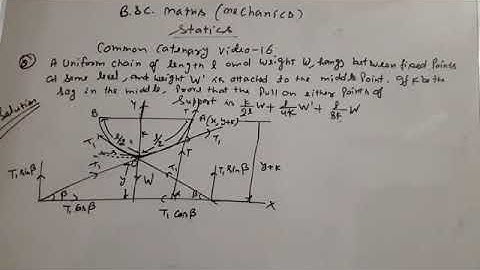 B.Sc. Maths (mechanics)
Statics
Common Catenary Video-16
A Uniform chain of length l and weight W, hangs between fixed points
at same level, and weight W' is attached to the middle point. If k be the
sag in the middle, prove that the pull on either point of
support is k/2l W + l/4k W' + l/8k W
Solution
Y
B
T
A(x, y+k)
T1
l/2
l/2
T1
T1 Sinβ
y
W
T1 Sinβ
y+k
β
β
X
T1 Cosβ
T1 Cosβ